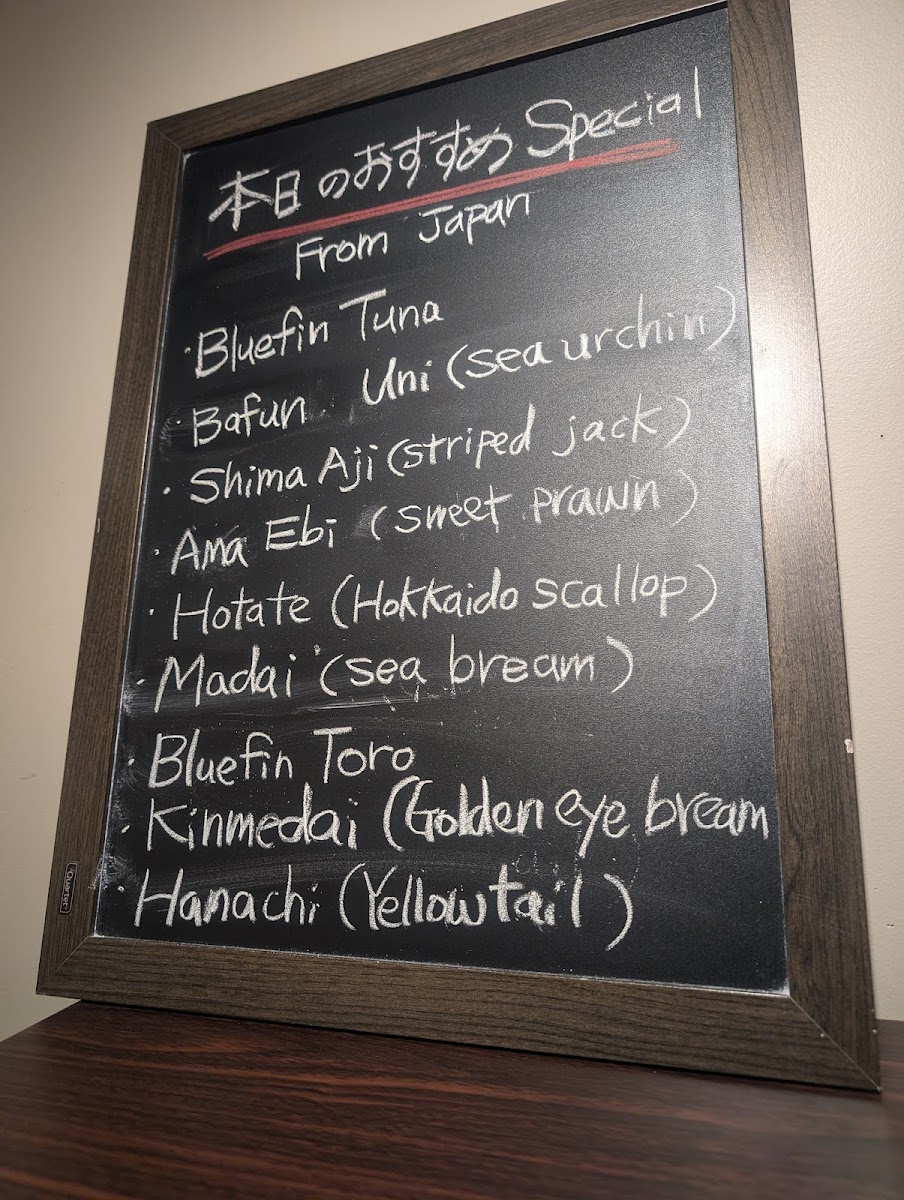 本日のおすすめ Special
From Japan
· Bluefin Tuna
· Bafun Uni (sea urchin)
· Shima Aji (striped jack)
· Ama Ebi (sweet prawn)
· Hotate (Hokkaido scallop)
· Madai (sea bream)
· Bluefin Toro
· Kinmedai (Golden eye bream
· Hamachi (Yellowtail)
Quartet